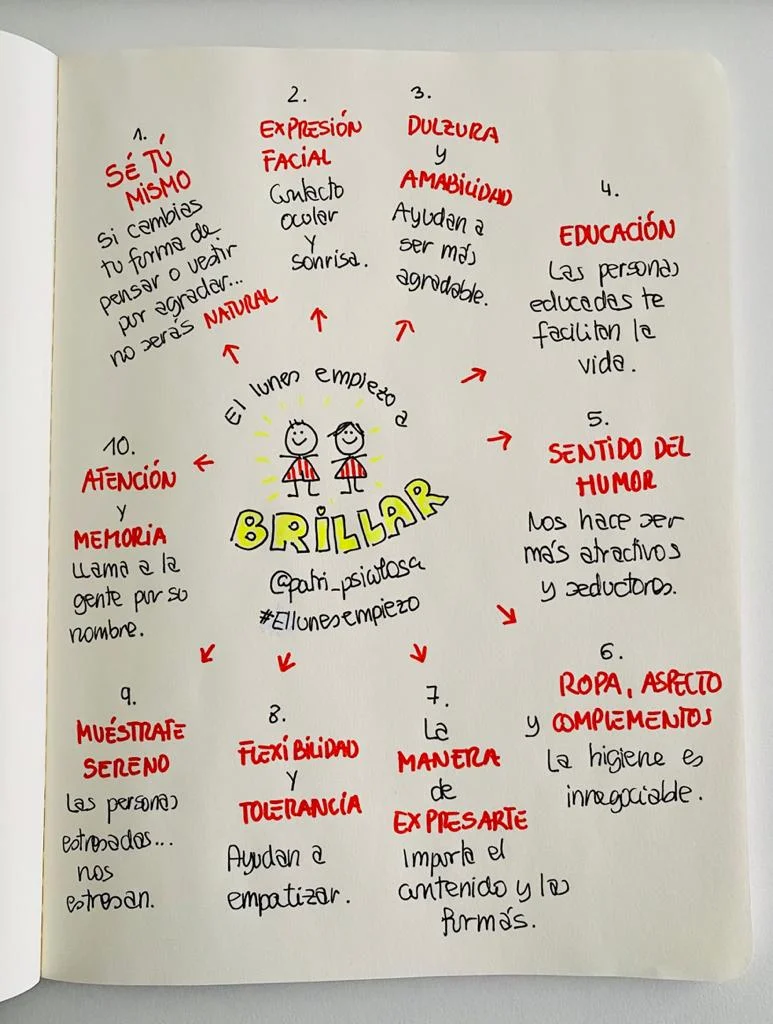 El lunes empiezo a
BRILLAR
@patri_psicologa
#Ellunesempiezo
1.
SÉ TÚ
MISMO
Si cambias
tu forma de
pensar o vestir
por agradar...
no serás NATURAL
2.
EXPRESIÓN
FACIAL
Contacto
ocular
y
sonrisa.
3.
DULZURA
y
AMABILIDAD
Ayudan a
ser más
agradable.
4.
EDUCACIÓN
Las personas
educadas te
facilitan la
vida.
5.
SENTIDO DEL
HUMOR
Nos hace ser
más atractivos
y seductores.
6.
ROPA, ASPECTO
y COMPLEMENTOS
La higiene es
innegociable.
7.
La
MANERA
de
EXPRESARTE
Importa el
contenido y las
formás.
8.
FLEXÍBILIDAD
Y
TOLERANCÍA
Ayudan a
empatizar.
9.
MUÉSTRATE
SERENO
Las personas
estresadas...
nos
estresan.
10.
ATENCIÓN
Y
MEMORIA
Llama a la
gente por su
nombre.